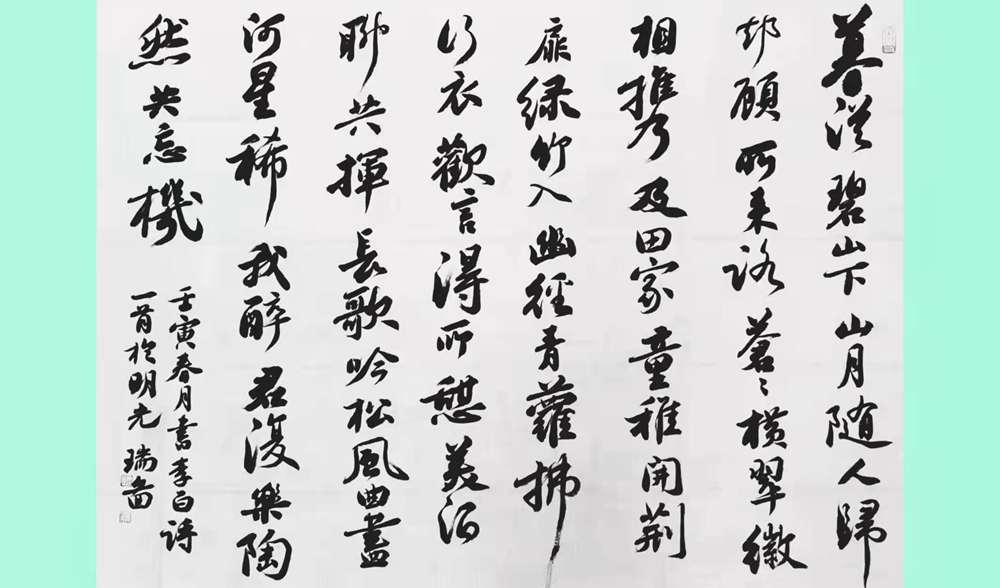 暮從碧山下山月随人歸
却顧所来路蒼〻横翠微
相携及田家童稚開荆
扉緑竹入幽徑青蘿拂
行衣歡言得所憩美酒
聊共揮長歌吟松風曲盡
河星稀我醉君復樂陶
然共忘機
壬寅春月書李白詩
一首於明光 瑞